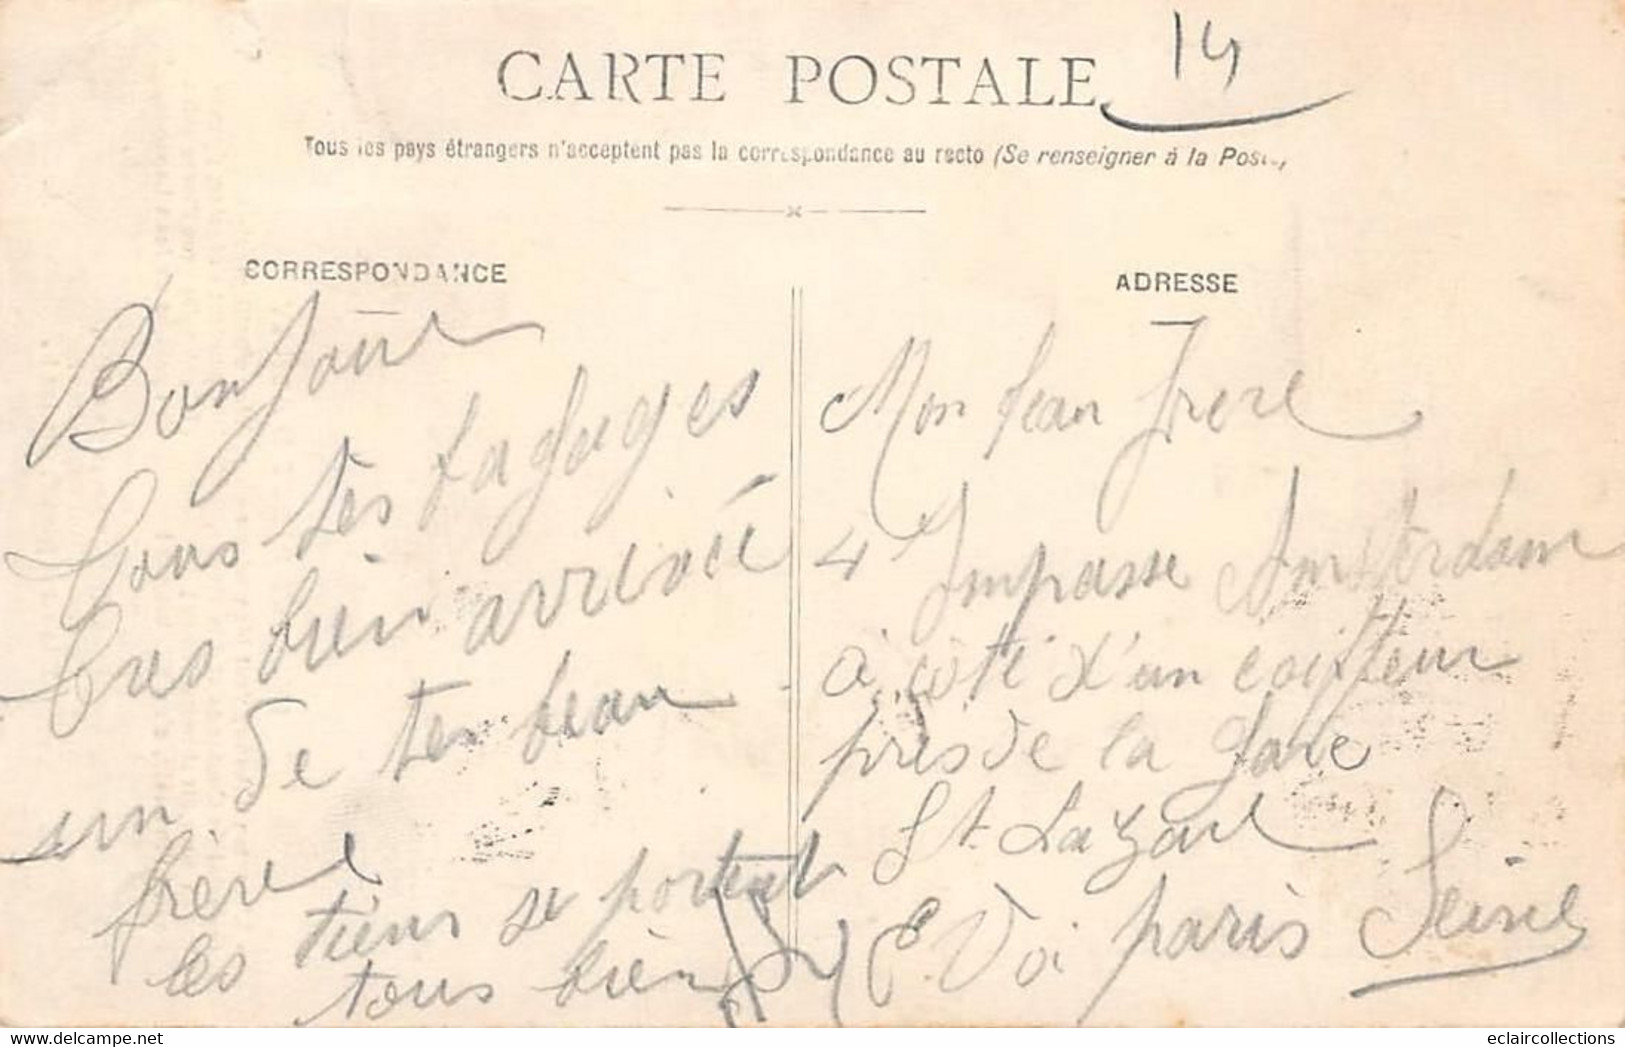 CARTE POSTALE
14
Tous les pays étrangers n'acceptent pas la correspondance au recto (Se renseigner à la Poste)
CORRESPONDANCE
Bonjour
tous tes bagages
tres bien arrivée
un de ten beau
frère
les tiens se portent
tous bien
ADRESSE
Mon beau frere
4 Impasse Amsterdam
à côté d'un coiffeur
près de la gare
St. Lazare
paris Seine
eclaircollections